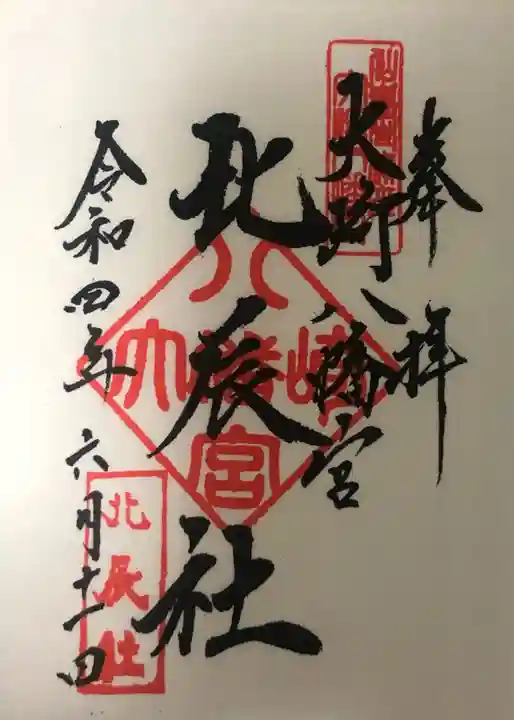 奉拝
大崎八幡宮
北辰社
令和四年六月十一日
大崎八幡宮
北辰社